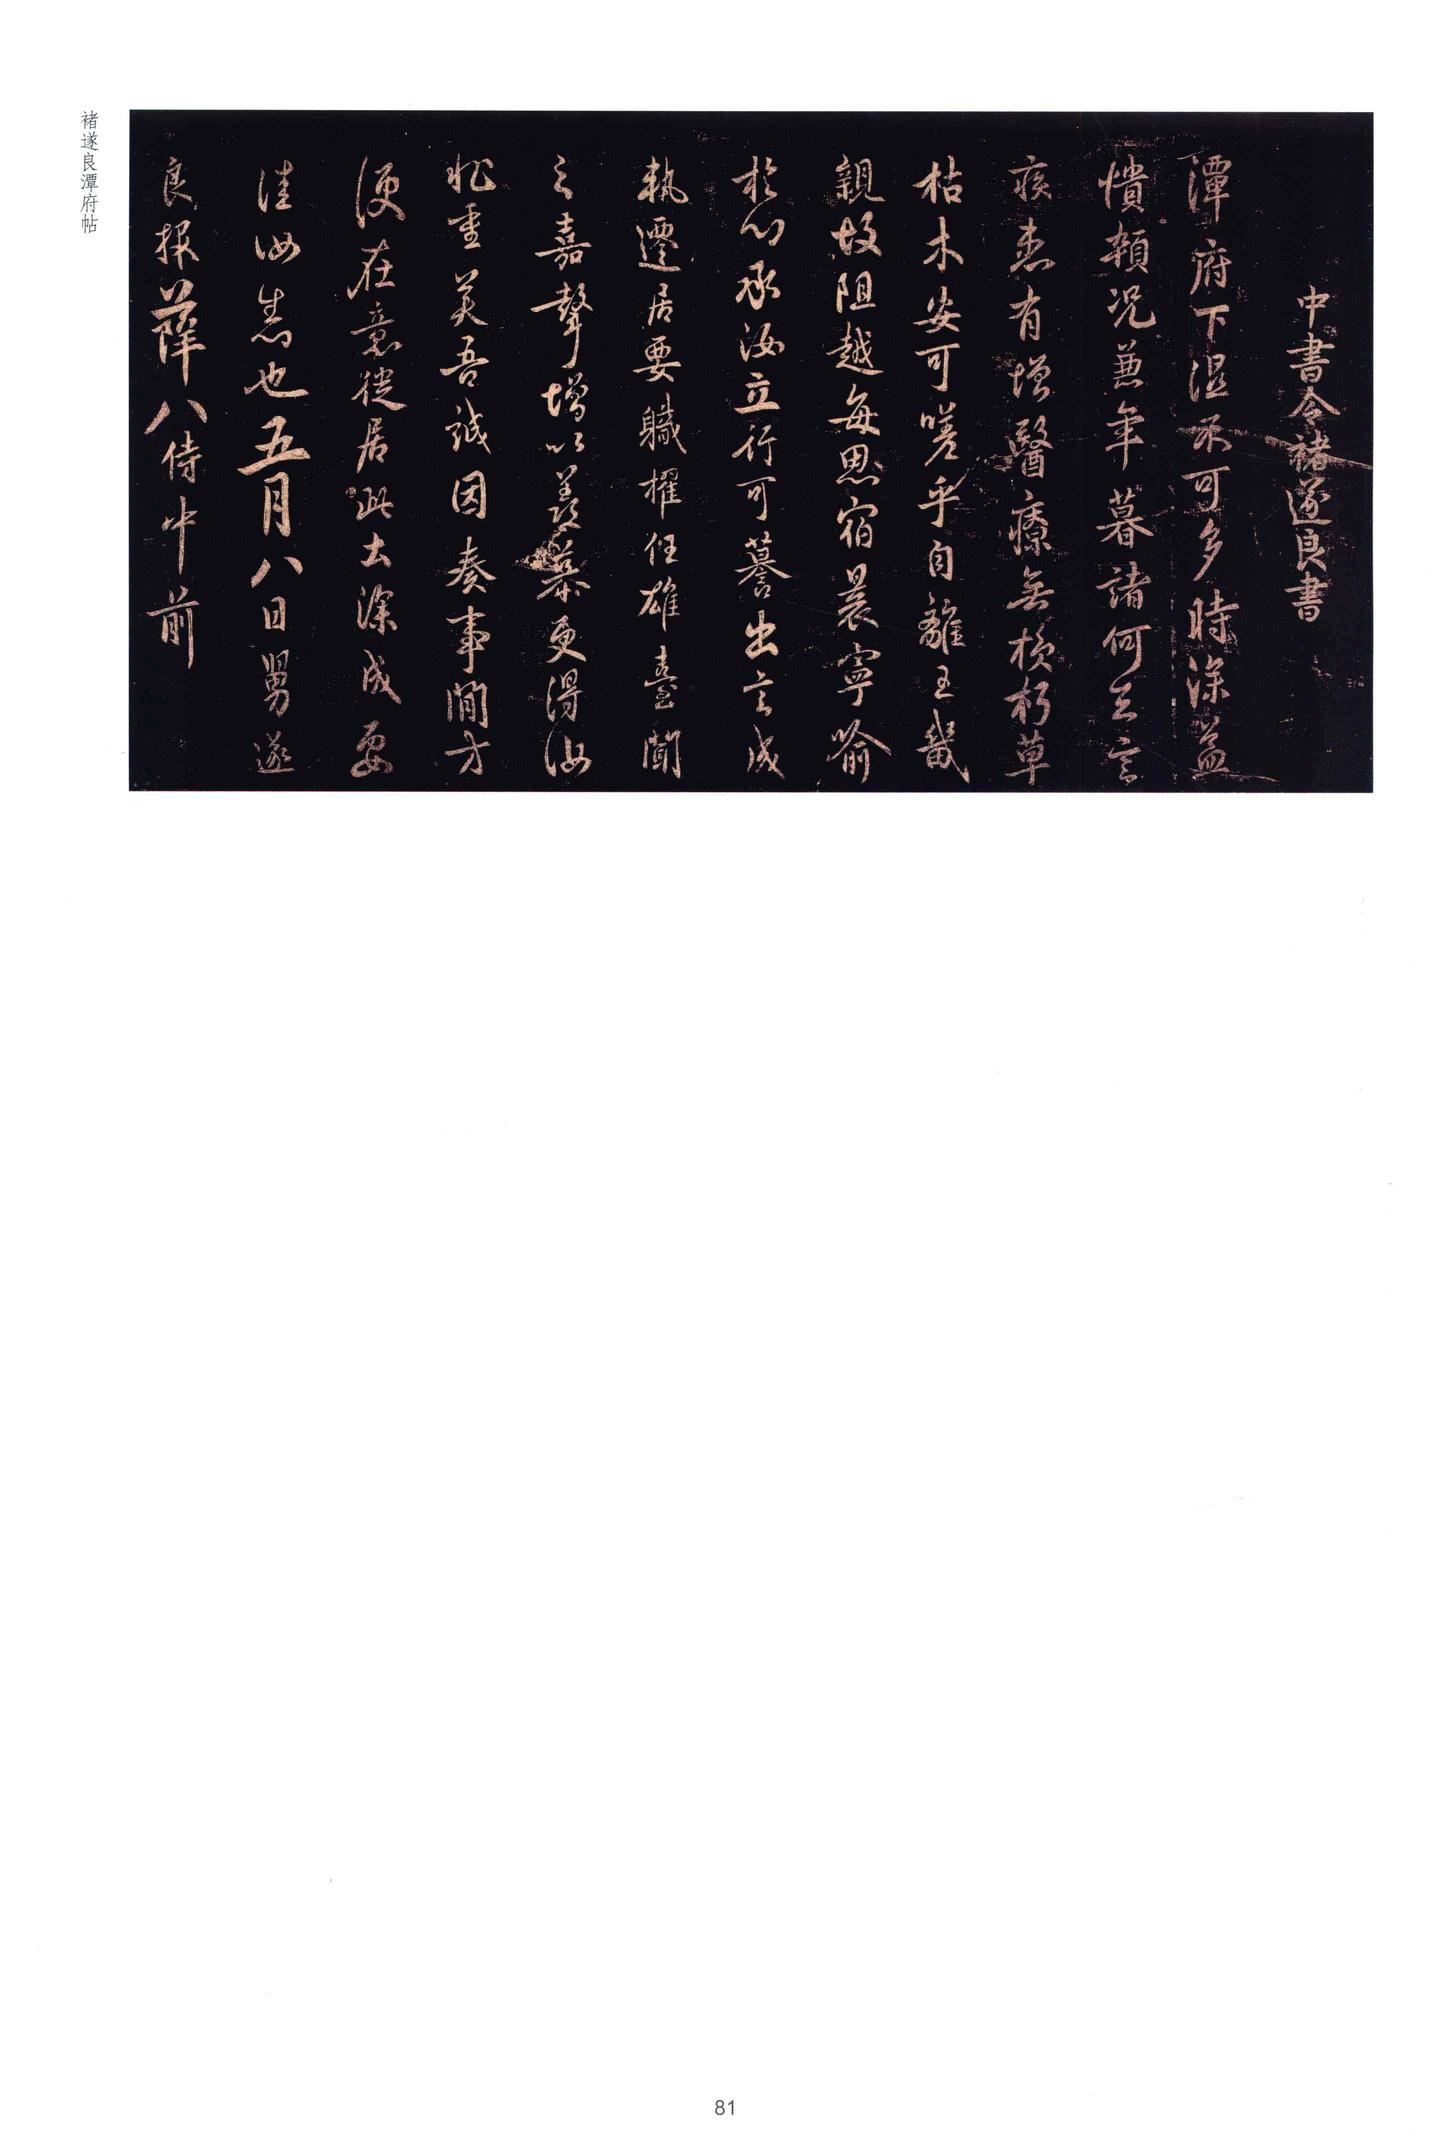 褚遂良潭府帖
中書令褚遂良書
潭府下濕不可多時深益
憒頓況兼年暮諸何足言
疾患有增醫療無損朽草
枯木安可嗟乎自離王畿
親故阻越每思宿晨寧喻
於心承汝立行可譽出言成
執遷居要職擢任雄臺聞
之嘉聲增以羨慕更得汝
非重美吾誠因奏事間方
便在意從居此土深成要
佳汝悉也五月八日舅遂
良報薛八侍中前
81